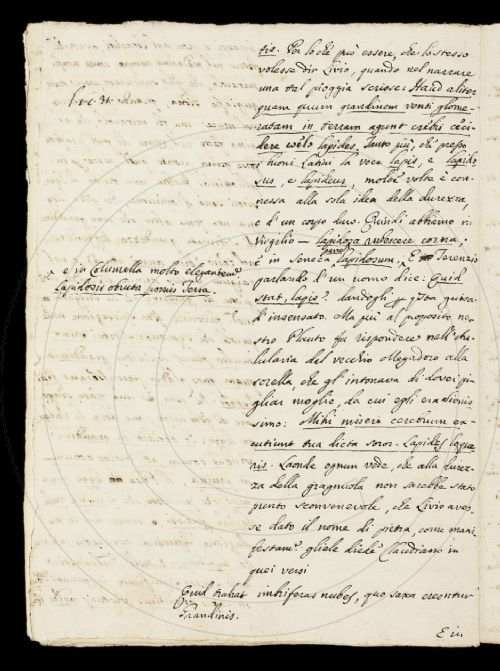 tis. Perloché può essere, che lo stesso
volesse dir Livio, quando nel narrare
una tal pioggia scrisse: Haud aliter
quam quum grandinem venti glome-
ratam in terram agunt crebri ceci-
dere cœlo lapides. Tanto più, che presso
i buoni Latini la voce lapis, e lapido
sus, e lapideus, molte volte è con-
nessa alla sola idea della durezza,
e d'un corpo duro. Quindi abbiamo in
Virgilio — lapidosa rubescere corna;
è in Seneca lapidosum; E Terenzio
parlando d'un uomo dice: Quid
stat, lapis? dandogli
d'insensato. Ma più al proposito no-
stro Plauto fa rispondere nell'Au-
lularia dal vecchio Megadoro alla
sorella, che gl'intonava di dover pi-
gliar moglie, da cui egli era alienis-
simo: Mihi misero cerebrum ex-
cutiunt tua dicta soror. Lapides loque-
ris. Laonde ognun vede, che alla durez-
za della gragnuola non sarebbe stato
punto sconvenevole, che Livio aves-
se dato il nome di pietra, come mani
festam.e gliele diede Claudiano in
quei versi
Quid trahat imbriferas nubes, quo saxa creentur
Grandinis.
E in
e in Columella molto elegantem.e
Lapidosis obruta pomis Terra.